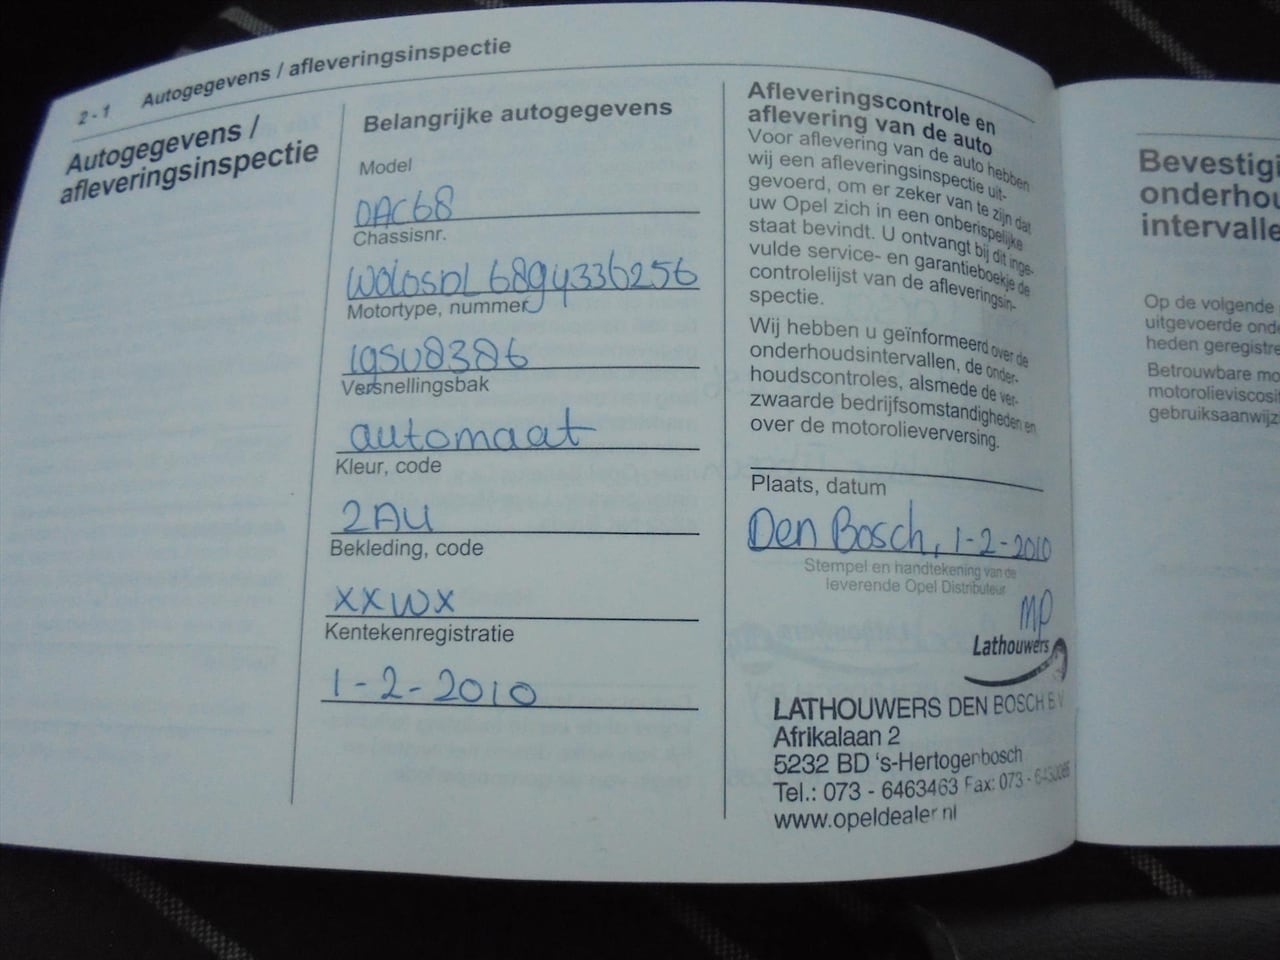 2 - 1 Autogegevens / afleveringsinspectie
Autogegevens /
afleveringsinspectie
Belangrijke autogegevens
Model
0AC68
Chassisnr.
W0L0SDL6894336256
Motortype, nummer
19SU8386
Versnellingsbak
automaat
Kleur, code
2AU
Bekleding, code
XXWX
Kentekenregistratie
1-2-2010
Afleveringscontrole en
aflevering van de auto
Voor aflevering van de auto hebben
wij een afleveringsinspectie uit-
gevoerd, om er zeker van te zijn dat
uw Opel zich in een onberispelijke
staat bevindt. U ontvangt bij dit inge-
vulde service- en garantieboekje de
controlelijst van de afleveringsin-
spectie.
Wij hebben u geïnformeerd over de
onderhoudsintervallen, de onder-
houdscontroles, alsmede de ver-
zwaarde bedrijfsomstandigheden en
over de motorolieverversing.
Plaats, datum
Den Bosch, 1-2-2010
Stempel en handtekening van de
leverende Opel Distributeur
MP
Lathouwers
LATHOUWERS DEN BOSCH B.V.
Afrikalaan 2
5232 BD 's-Hertogenbosch
Tel.: 073 - 6463463 Fax: 073 -
www.opeldealer.nl
Bevestigi
onderhou
intervalle
Op de volgende
uitgevoerde onde
heden geregistre
Betrouwbare mo
motorolieviscosit
gebruiksaanwijz